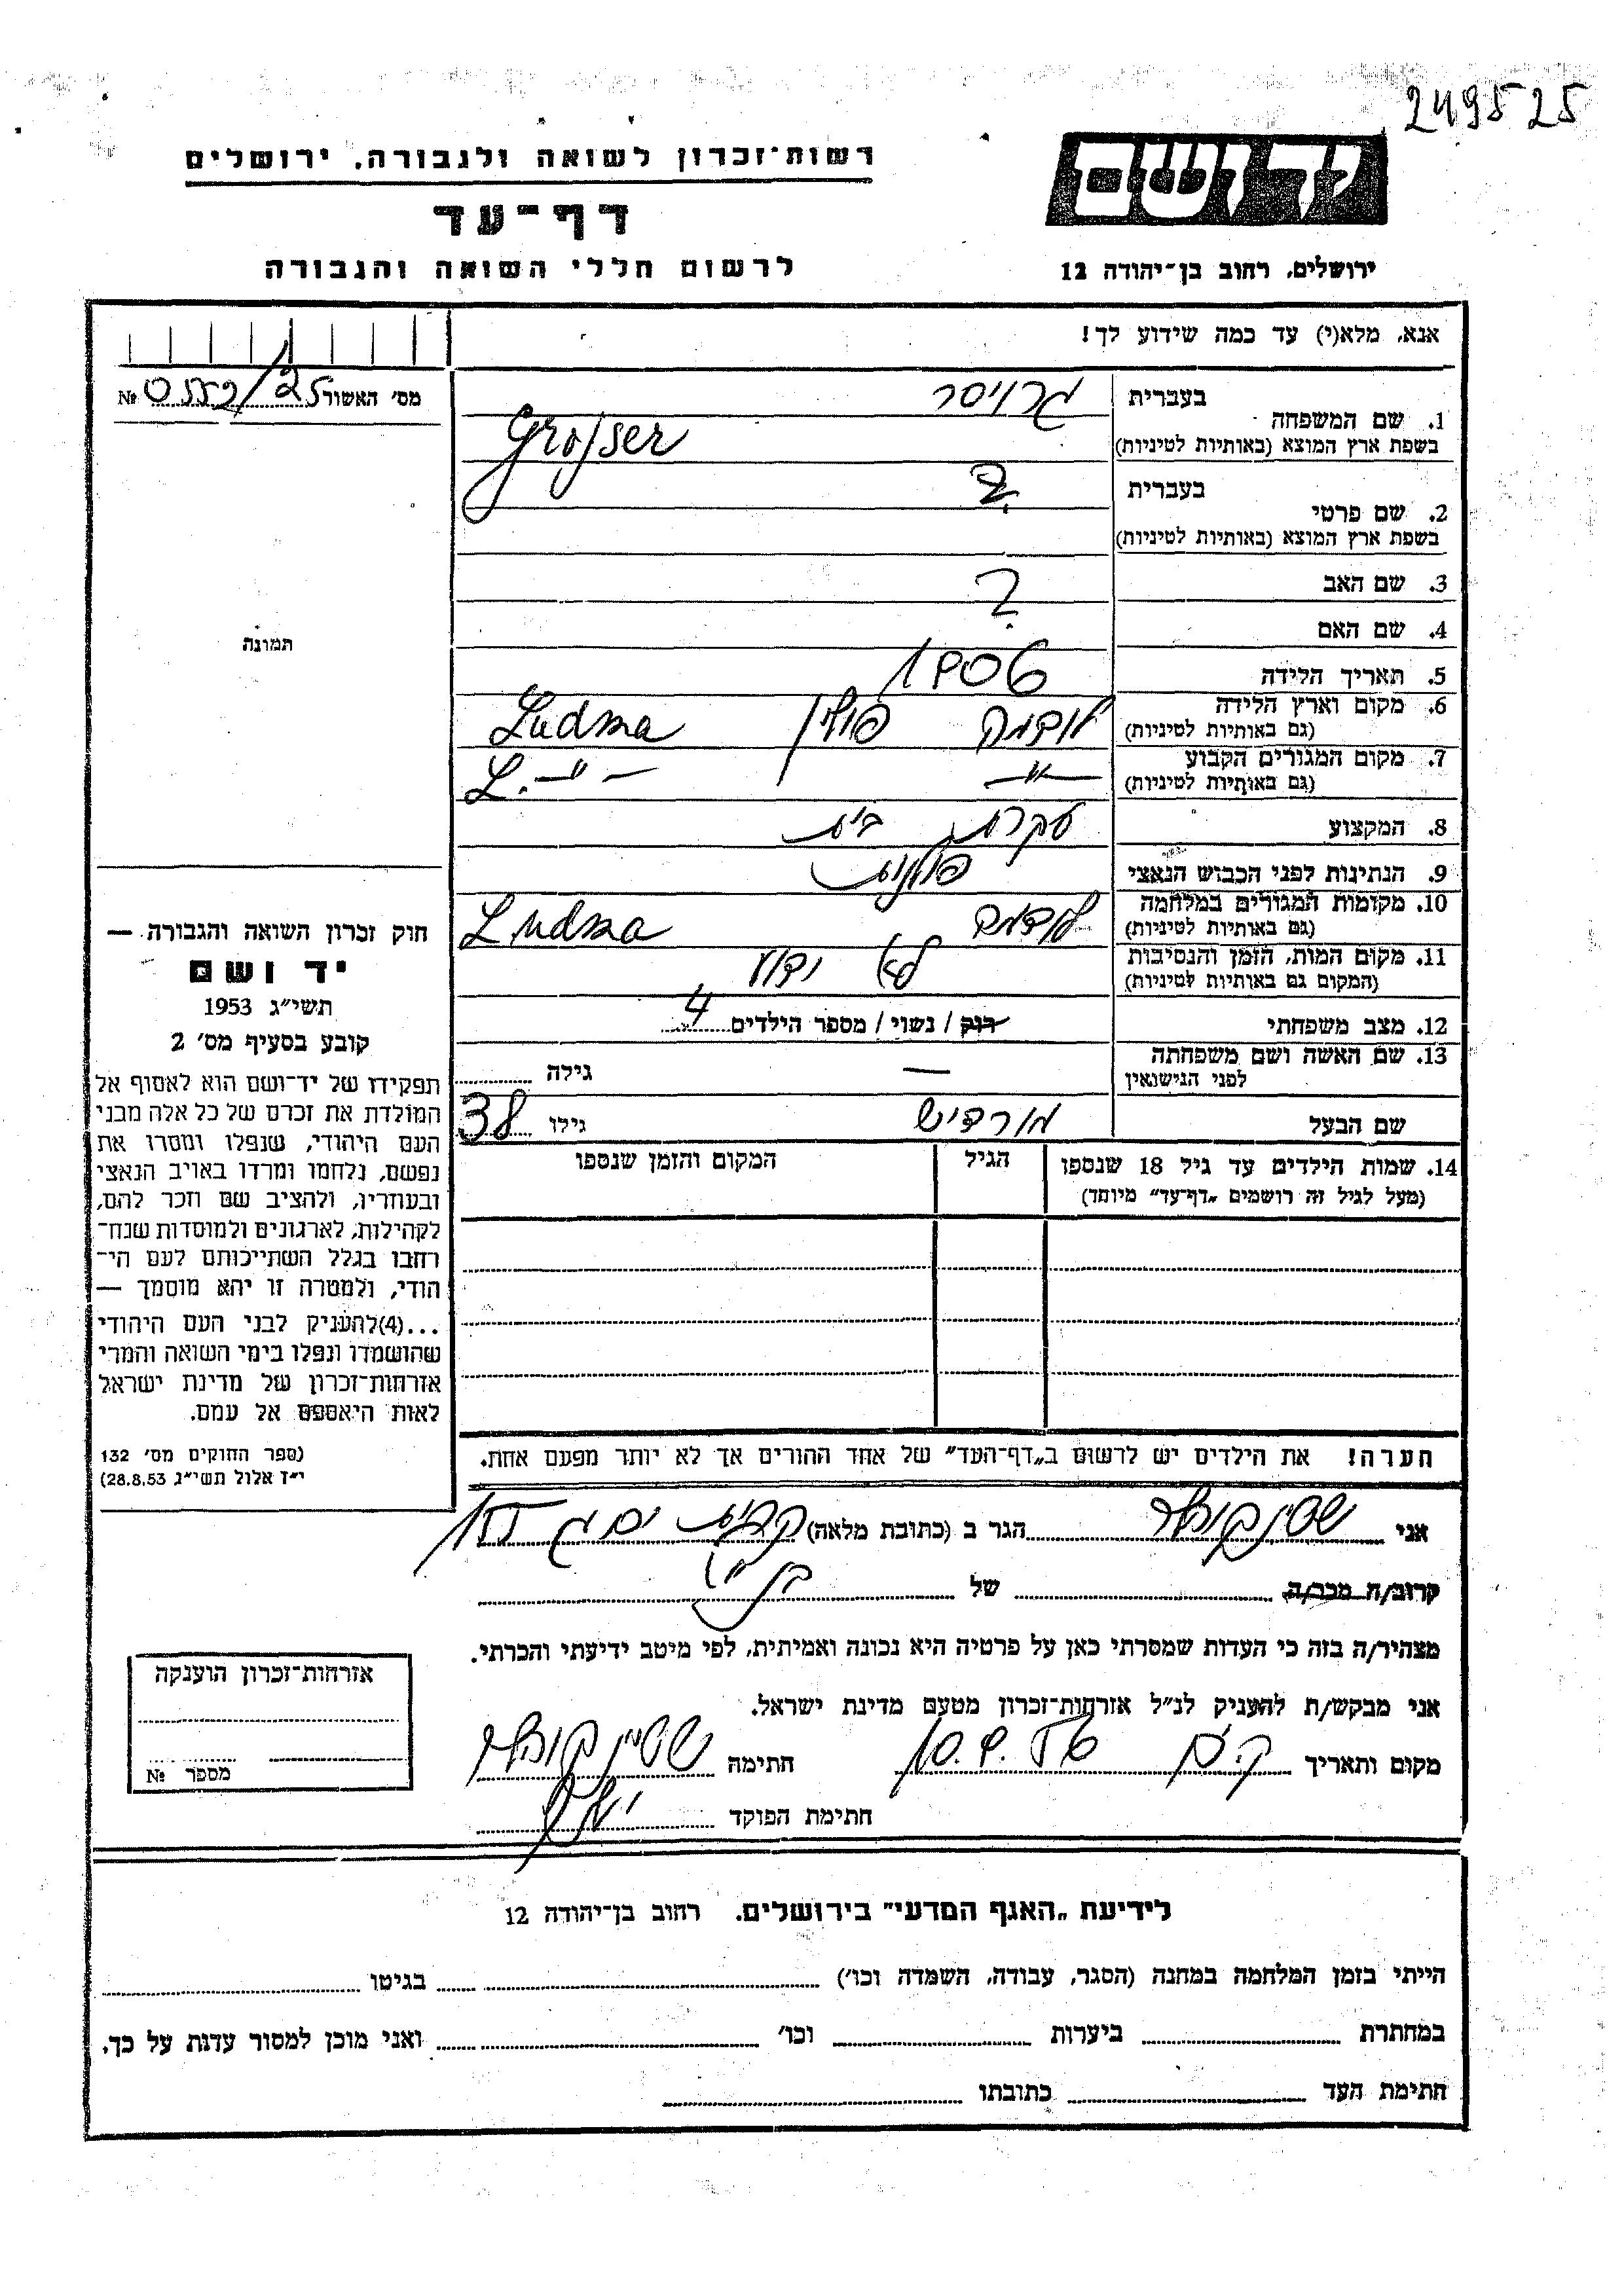 249525
יד ושם
רשות־זכרון לשואה ולגבורה, ירושלים
דף־עד
ירושלים, רחוב בן־יהודה 12
לרשום חללי השואה והגבורה
אנא, מלא(י) עד כמה שידוע לך!
מס׳ האשור 0552/25 №
1. שם המשפחה
בעברית גרויסר
בשפת ארץ המוצא (באותיות לטיניות) Grojser
2. שם פרטי
בעברית ?
בשפת ארץ המוצא (באותיות לטיניות)
3. שם האב ?
4. שם האם
5. תאריך הלידה 1906
6. מקום וארץ הלידה פולין Ludma
(גם באותיות לטיניות)
7. מקום המגורים הקבוע —״— L. —״—
(גם באותיות לטיניות)
8. המקצוע עקרת בית
9. הנתינות לפני הכבוש הנאצי פולנית
10. מקומות המגורים במלחמה Ludma
(גם באותיות לטיניות)
11. מקום המות, הזמן והנסיבות לא ידוע
(המקום גם באותיות לטיניות)
12. מצב משפחתי רווק / נשוי / מספר הילדים 4
13. שם האשה ושם משפחתה — גילה
לפני הנישואין
שם הבעל מורדיש גילו 38
14. שמות הילדים עד גיל 18 שנספו הגיל המקום והזמן שנספו
(מעל לגיל זה רושמים „דף־עד״ מיוחד)
הערה! את הילדים יש לרשום ב„דף־העד״ של אחד ההורים אך לא יותר מפעם אחת.
תמונה
חוק זכרון השואה והגבורה —
יד ושם
תשי״ג 1953
קובע בסעיף מס׳ 2
תפקידו של יד־ושם הוא לאסוף אל
המולדת את זכרם של כל אלה מבני
העם היהודי, שנפלו ומסרו את
נפשם, נלחמו ומרדו באויב הנאצי
ובעוזריו, ולהציב שם וזכר להם,
לקהילות, לארגונים ולמוסדות שנח־
רחבו בגלל השתייכותם לעם הי־
הודי, ולמטרה זו יהא מוסמך —
...(4)להעניק לבני העם היהודי
שהושמדו ונפלו בימי השואה והמרי
אזרחות־זכרון של מדינת ישראל
לאות היאספם אל עמם.
(ספר החוקים מס׳ 132
י״ז אלול תשי״ג 28.8.53)
אני הגר ב (כתובת מלאה) קרית ים ג
קרוב/ה מכר/ה של בן
מצהיר/ה בזה כי העדות שמסרתי כאן על פרטיה היא נכונה ואמיתית, לפי מיטב ידיעתי והכרתי.
אני מבקש/ת להעניק לנ״ל אזרחות־זכרון מטעם מדינת ישראל.
מקום ותאריך ק.ים חתימה
חתימת הפוקד
אזרחות־זכרון הוענקה
מספר №
לידיעת „האגף המדעי״ בירושלים. רחוב בן־יהודה 12
הייתי בזמן המלחמה במחנה (הסגר, עבודה, השמדה וכו׳) בגיטו
במחתרת ביערות וכו׳ ואני מוכן למסור עדות על כך.
חתימת העד כתובתו